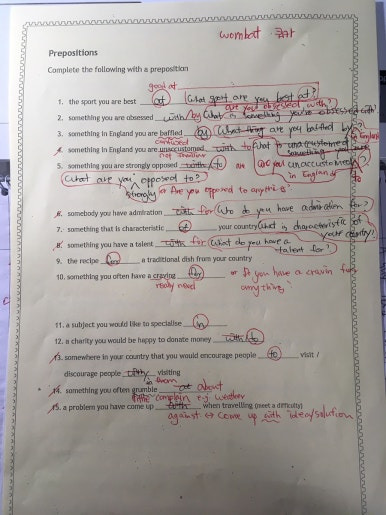 wombat
Prepositions
Complete the following with a preposition
good at
1. the sport you are best at What sport are you best at?
are you obsessed with?
2. something you are obsessed with/by What is something you're obsessed with?
3. something in England you are baffled by What thing are you baffled by?
confused
4. something in England you are unaccustomed with to What
not familiar
5. something you are strongly opposed with/to are you unaccustomed to in England?
What are you strongly opposed to?
or Are you opposed to anything?
6. somebody you have admiration with for Who do you have admiration for?
7. something that is characteristic of your country What is characteristic of your country?
8. something you have a talent with for What do you have a talent for?
9. the recipe for a traditional dish from your country
10. something you often have a craving for or Do you have a cravin for anything?
really need
11. a subject you would like to specialise in
12. a charity you would be happy to donate money with to
13. somewhere in your country that you would encourage people to visit /
discourage people visiting
from
14. something you often grumble at about
complain e.g. weather
15. a problem you have come up with when travelling (meet a difficulty)
against ↔ come up with idea/solution